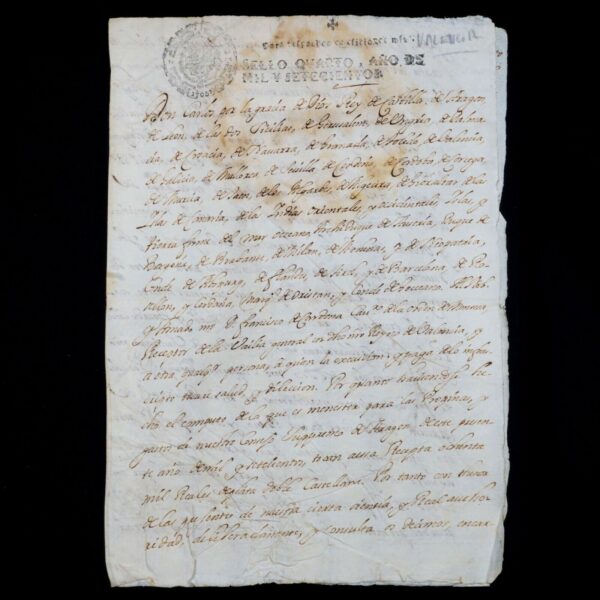 para despachos de oficio dos mrs.
VALENCIA
SELLO QUARTO, AÑO DE
MIL Y SETECIENTOS.
Don Carlos por la gracia de Dios Rey de Castilla, de Aragon,
de Leon, de las dos Sicilias, de Jerusalem, de Ungria, de Dalma
cia, de Croacia, de Navarra, de Granada, de Toledo, de Valencia,
de Galicia, de Mallorca, de Sevilla, de Cerdeña, de Cordova, de Corcega,
de Murcia, de Jaen, de los Algarbes, de Algecira, de Gibraltar, de las
Islas de Canaria, de las Indias orientales, y occidentales, Islas, y
tierra firme del mar oceano, Archiduque de Austria, Duque de
Borgoña, de Brabante, de Milan, de Athenas, y de Neopatria,
Conde de Abspurg, de Flandes, de Tirol, y de Barcelona, de Ro
sellon, y Cerdaña, Marq.s de Oristan, y Conde de Goceano. Al
y amado nro D. Francisco de Cardona Cau.ro de la orden de Montesa,
y Receptor de la Bailia general en nuestro Reyno de Valencia, y
a otra qualq.r persona, a quien la execucion, y paga de lo infra
scripto tocare salud, y dileccion. Por quanto haviendose
el computo de lo que es menester para las Propinas, y
gastos de nuestro Consejo Supremo de Aragon, deste presen
te año de mil, y setecientos, tocan a essa Recepta ochenta
mil Reales de plata doble Castellana. Por tanto con thenor
de las presentes de nuestra cierta ciencia, y Real autho
ridad, deliberadamente, y consulta os decimos, encar